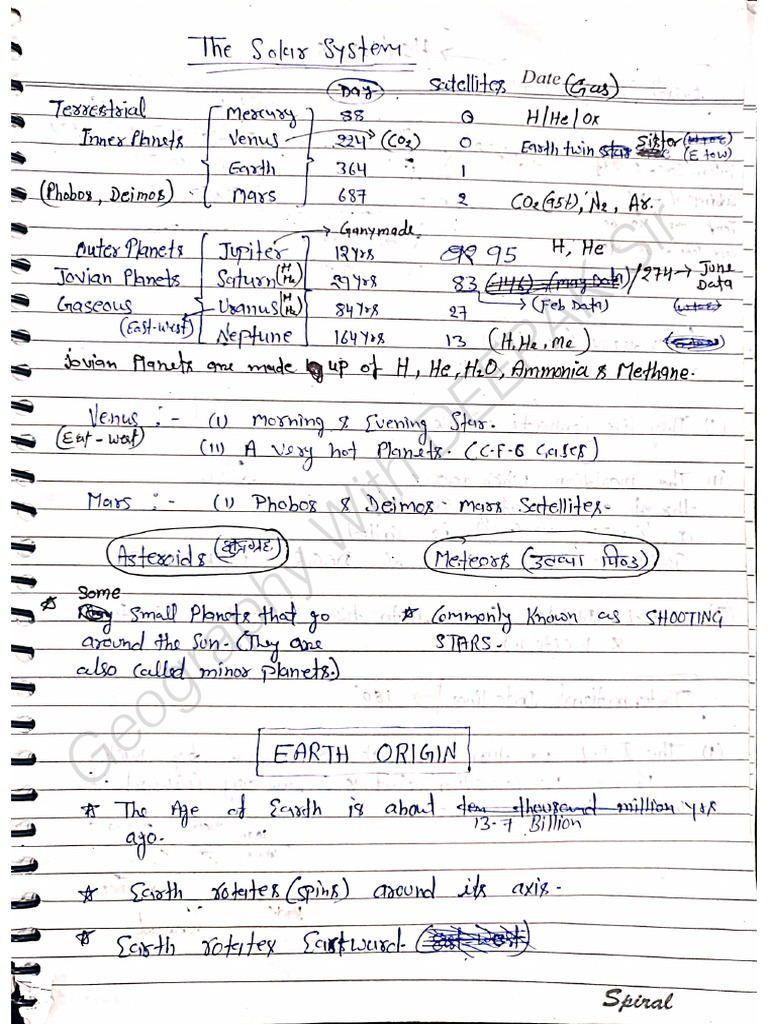 The Solar System
Day Satellites Date (Gas)
Terrestrial Mercury 88 0 H/He/Ox
Inner Planets Venus → 224 (CO2) 0 Earth twin Sister (E to W)
Earth 364 1
(Phobos, Deimos) Mars 687 2 CO2 (95%), N2, Ar.
→ Ganymade
Outer Planets Jupiter 12 Yrs 95 H, He
Jovian Planets Saturn (H He) 29 Yrs 83 (146) (may Data) /274 → June Data
Gaseous Uranus (H He) 84 Yrs 27 → (Feb Data)
(East-west) Neptune 164 Yrs 13 (H, He, Me)
Jovian Planets are made up of H, He, H2O, Ammonia & Methane.
Venus :- (i) Morning & Evening Star.
(East-west) (ii) A very hot Planets. (C-F-G Gases)
Mars :- (i) Phobos & Deimos - Mars Satellites-
Asteroids (क्षुद्रग्रह) Meteors (उल्का पिण्ड)
☆ Some Small Planets that go ☆ Commonly Known as SHOOTING
around the Sun- (They are STARS.
also called minor planets.)
EARTH ORIGIN
☆ The Age of Earth is about ten thousand million yrs
13.7 Billion
ago.
☆ Earth rotates (spins) around its axis-
☆ Earth rotates Eastward-
Geography With DEEPAK Sir
Spiral